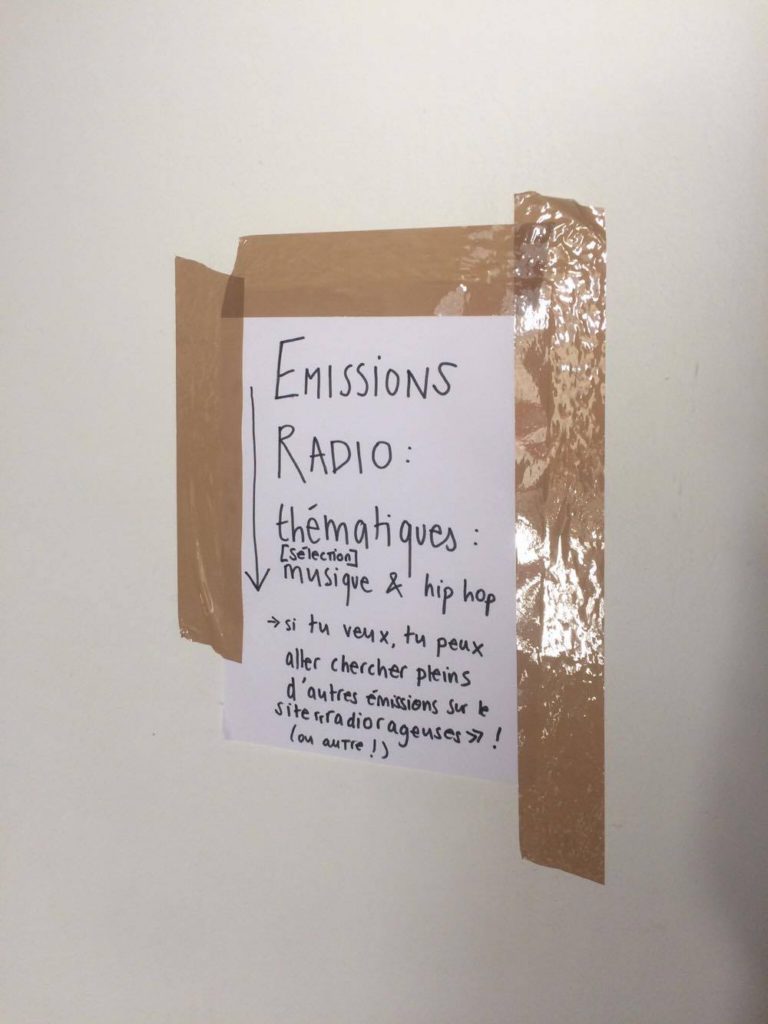 EMISSIONS
RADIO :
thématiques :
[sélection]
musique & hip hop
→ si tu veux, tu peux
aller chercher pleins
d'autres émissions sur le
site «radiorageuses» !
(ou autre !)